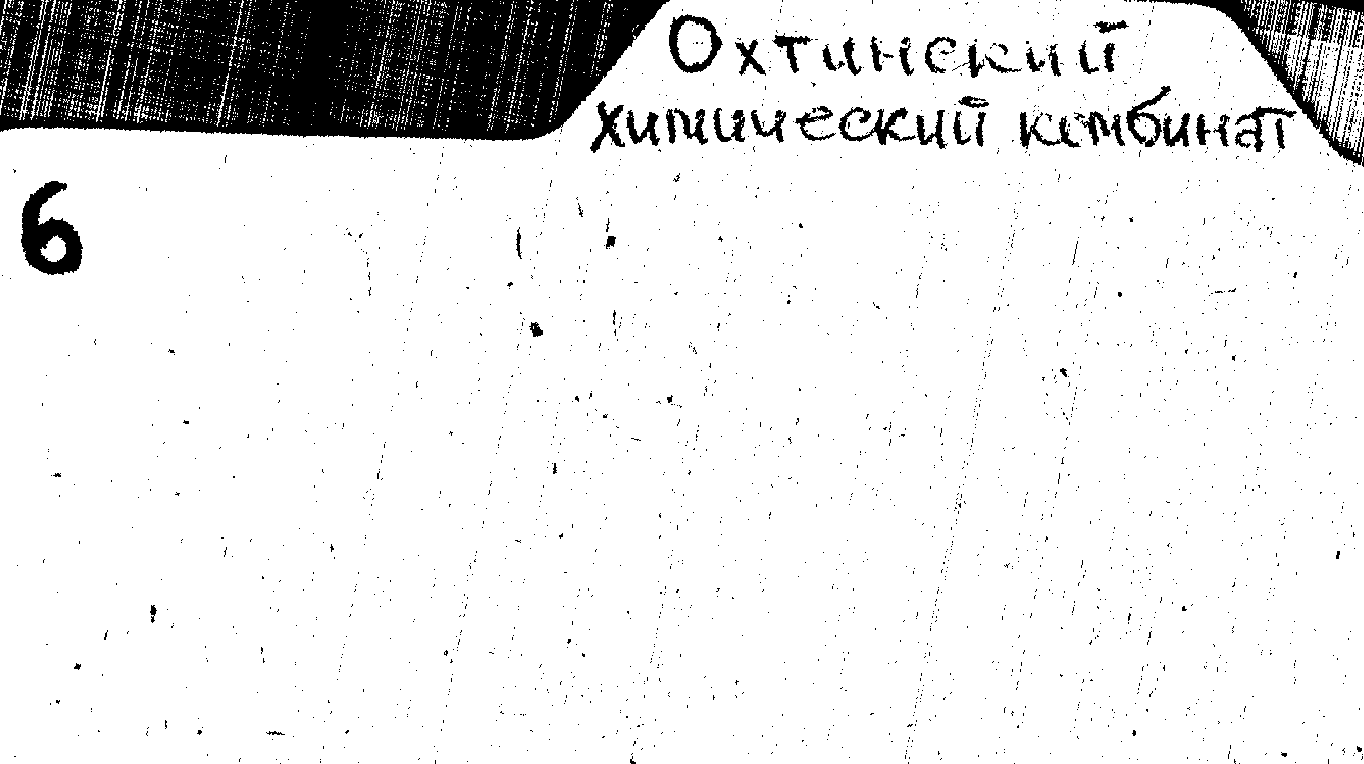 Охтинский
химический комбинат
6